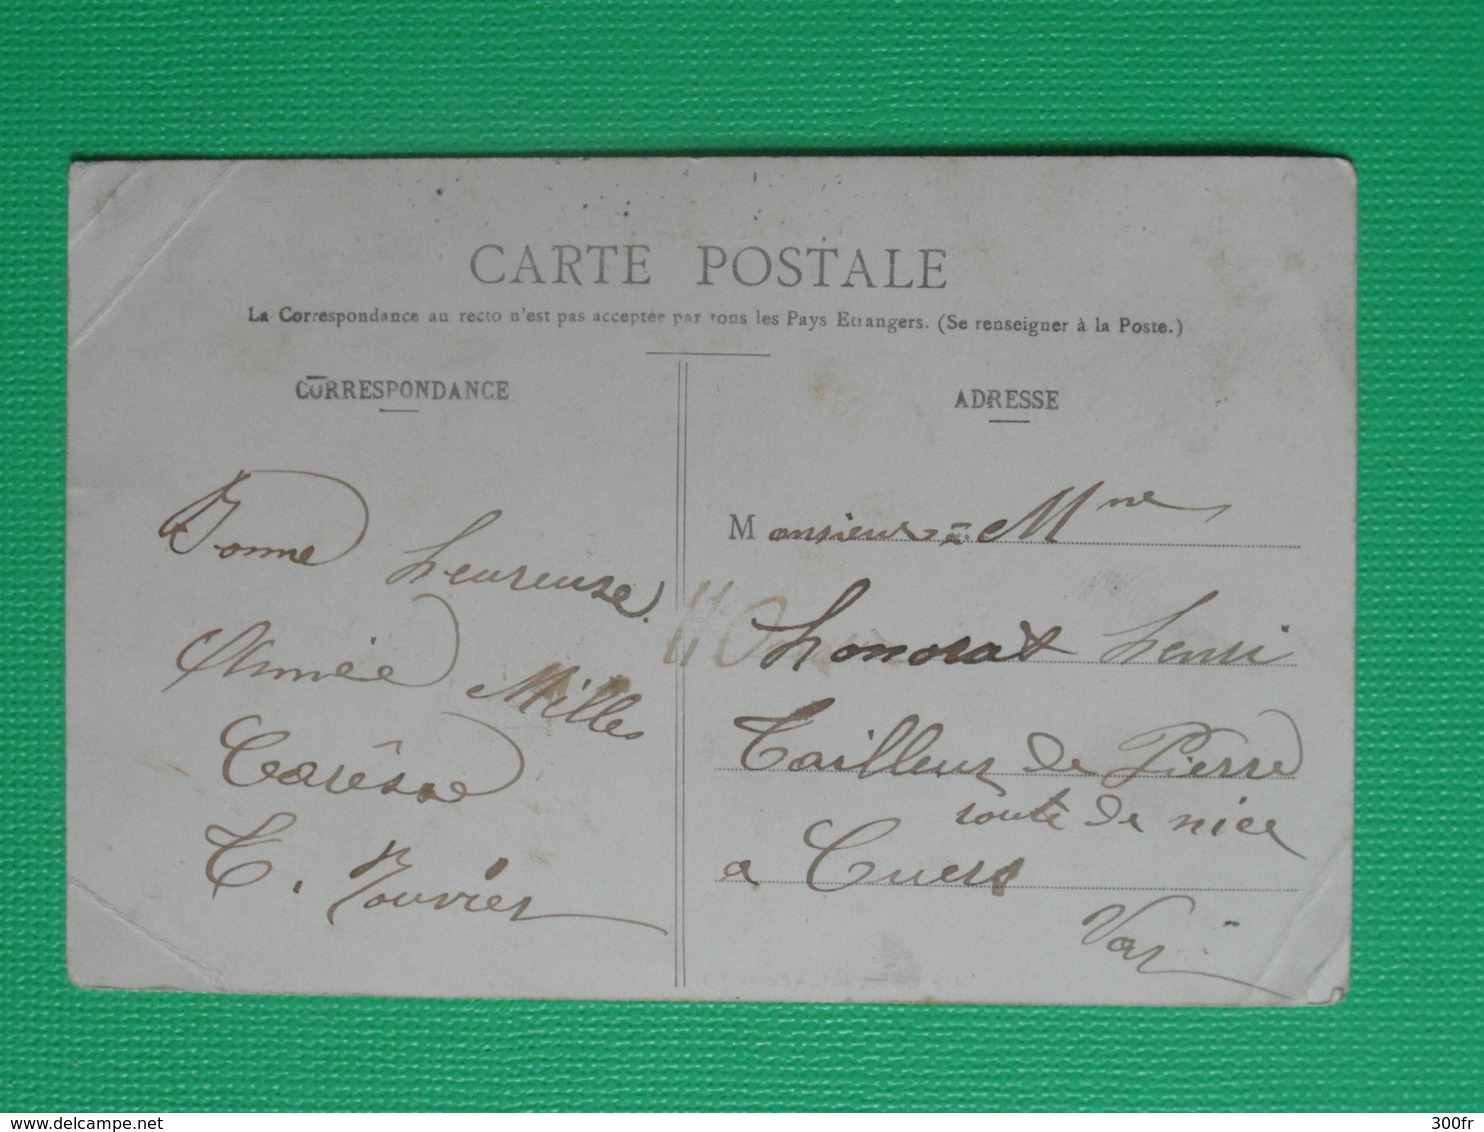 CARTE POSTALE
La Correspondance au recto n'est pas acceptée par tous les Pays Etrangers. (Se renseigner à la Poste.)
CORRESPONDANCE
Bonne heureuse
Année Milles
Carêsse
T. Rouvier
ADRESSE
Monsieur Mme
honorat henri
Tailleur de Pierre
route de nice
a Cuers
Var
delcampe.net
300fr